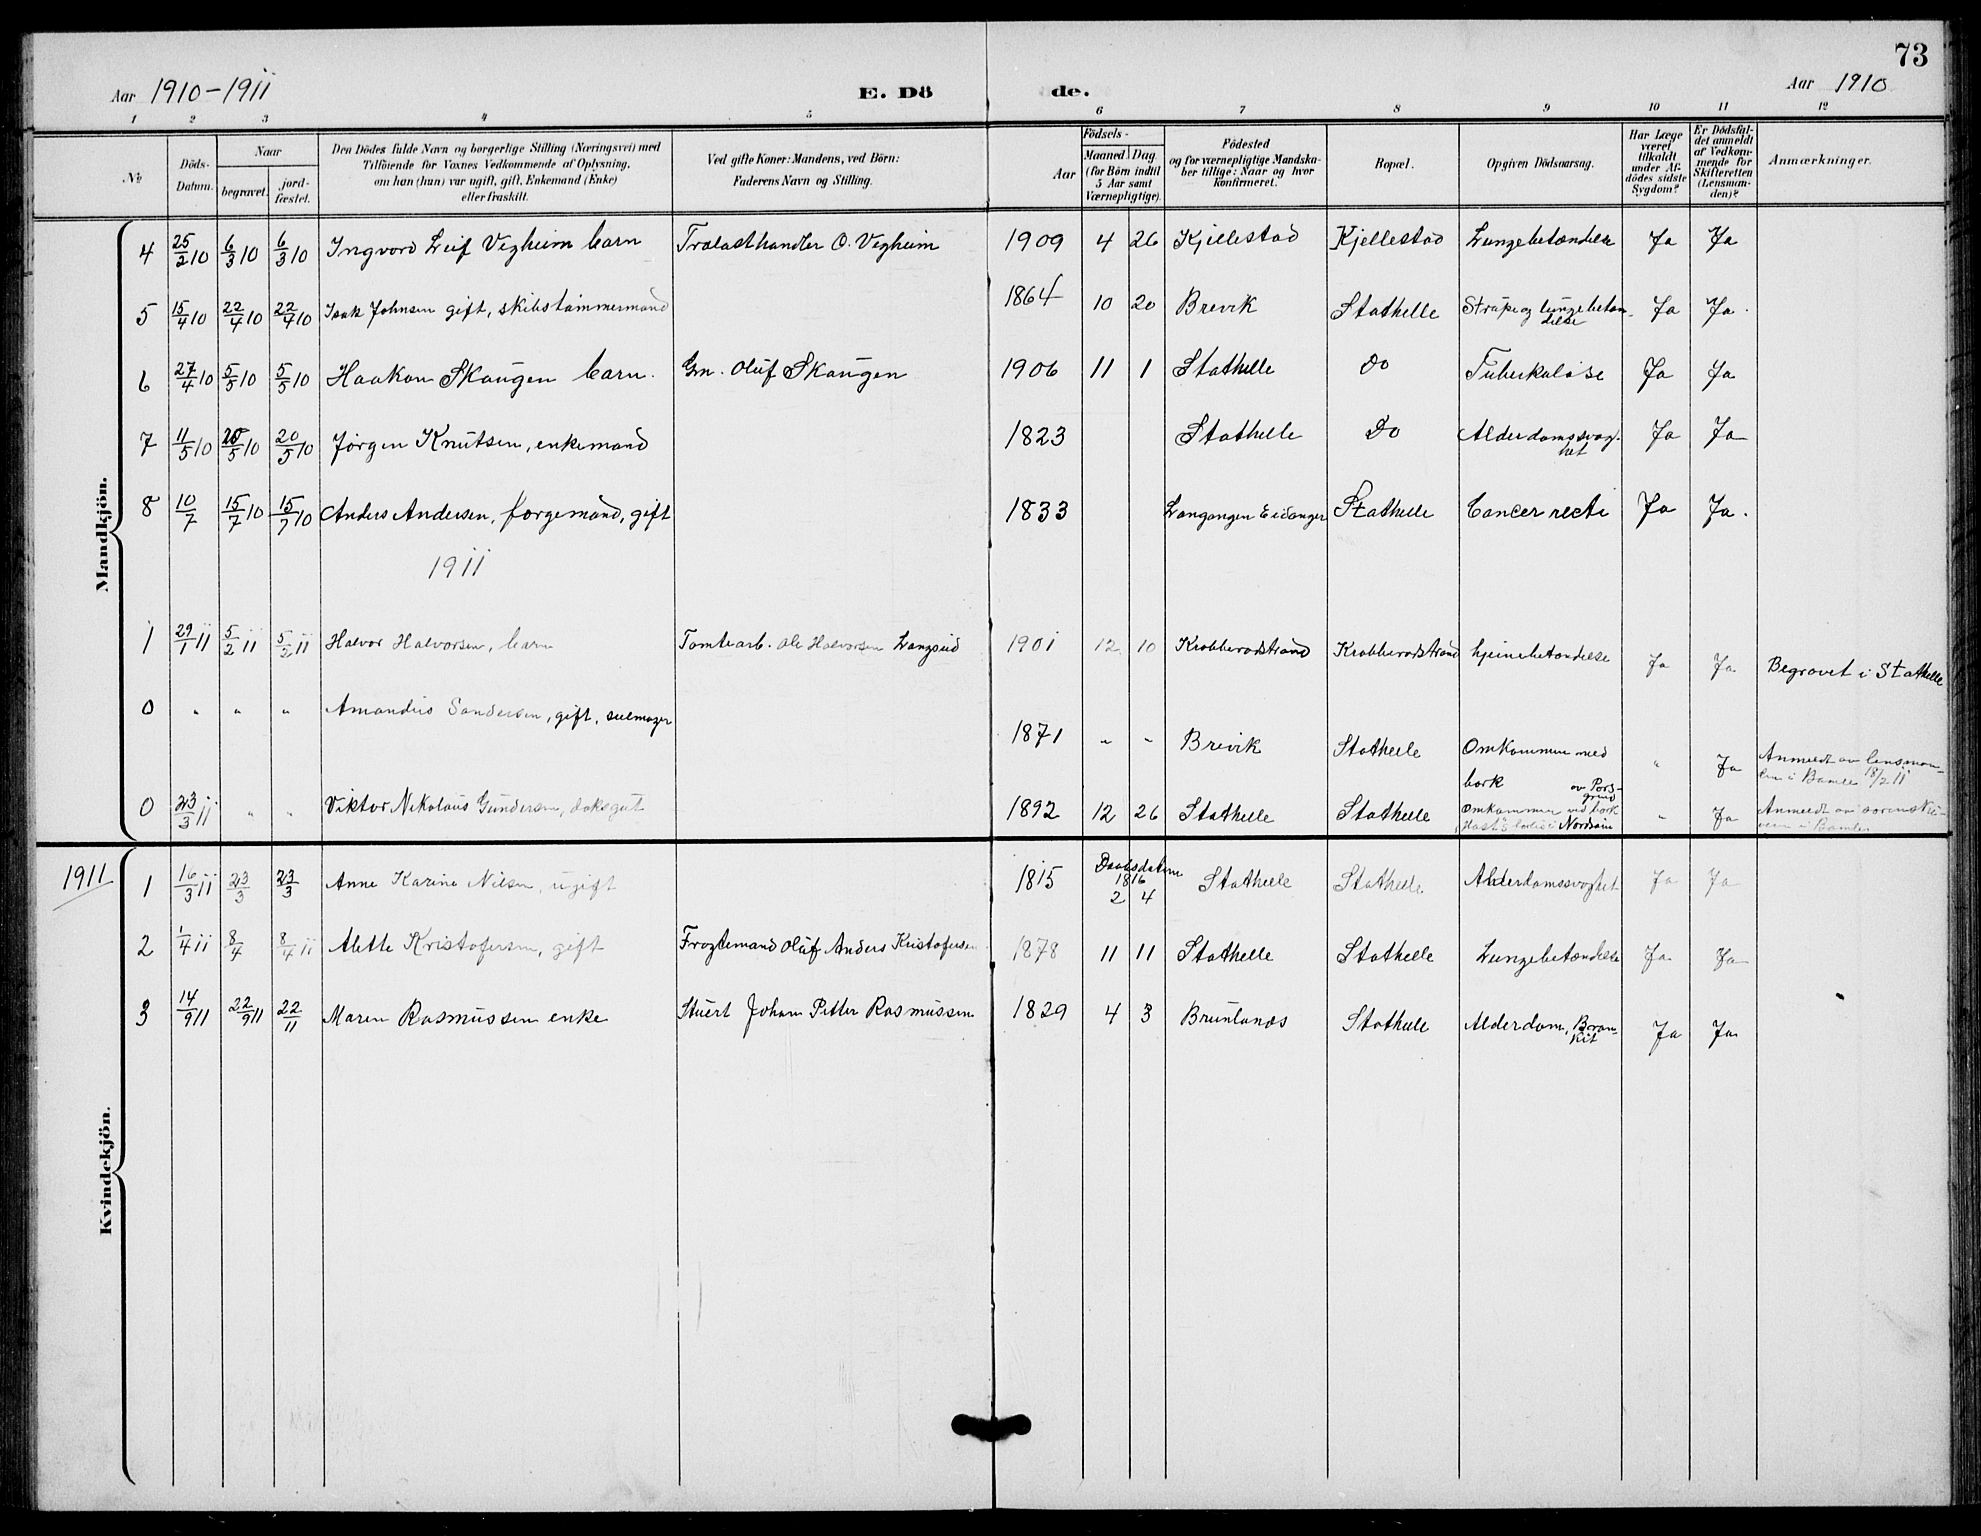 73
Aar 1910-1911 E. Dö de. Aar 1910
1 2 3 4 5 6 7 8 9 10 11 12
№
Döds-Datum.
Naar
begravet.
jord-fæstet.
Den Dödes fulde Navn og borgerlige Stilling (Næringsvei) med
Tilföiende for Voxnes Vedkommende af Oplysning,
om han (hun) var ugift, gift, Enkemand (Enke)
eller fraskilt.
Ved gifte Koner: Mandens, ved Börn:
Faderens Navn og Stilling.
Födsels-
Aar
Maaned Dag
(for Börn indtil
5 Aar samt
Værnepligtige).
Födested
og for værnepligtige Mandska-
ber tillige: Naar og hvor
Konfirmeret.
Bopæl.
Opgiven Dödsaarsag.
Har Læge
været
tilkaldt
under Af-
dödes sidste
Sygdom?
Er Dödsfal-
det anmeldt
af Vedkom-
mende for
Skifteretten
(Lensman-
den)?
Anmærkninger.
Mandkjön.
4 25/2 10 6/3 10 6/3 10 Ingvard Leif Vegheim barn Tralasthandler O. Vegheim 1909 4 26 Kjellestad Kjellestad Lungebetændelse Ja Ja
5 15/4 10 22/4 10 22/4 10 Isak Johnsen gift, skibstømmermand 1864 10 20 Brevik Stathelle Strupe og lungebetæn-
delse Ja Ja.
6 27/4 10 5/5 10 5/5 10 Haakon Skaugen barn. Gm. Oluf Skaugen 1906 11 1 Stathelle Do Tuberkuløse Ja Ja
7 11/5 10 20/5 10 20/5 10 Jørgen Knutsen, enkemand 1823 Stathelle Do Alderdomssvag-
het Ja Ja
8 10/7 15/7 10 15/7 10 Anders Andersen, færgemand, gift 1833 Langangen Eidanger Stathelle Cancer recti Ja Ja.
1911
1 29/1 11 5/2 11 5/2 11 Halvor Halvorsen, barn Tomtearb. Ole Halvorsen Langsid 1901 12 10 Krabberødstrand Krabberødstrand hjernebetændelse Ja Ja Begravet i Stathelle
0 " " " Amandus Sandersen, gift, seilmager 1871 " " Brevik Stathelle Omkommen med
bark av Pors-
grund " Ja Anmeldt av lensman-
den i Bamle 18/2 11
0 23/3 11 " " Viktor Nikolaus Gundersen, daksgut 1892 12 26 Stathelle Stathelle Omkommen ved bark
i Nordsøin " Ja Anmeldt av i Bamle
Kvindekjön.
1911 1 16/3 11 23/3 23/3 Anne Karine Nilsen, ugift 1815 Daabsdatum
1816
2 4 Stathelle Stathelle Alderdomssvaghet Ja Ja
2 1/4 11 8/4 8/4 11 Alette Kristofersen, gift Oluf Anders Kristofersen 1878 11 11 Stathelle Stathelle Lungebetændelse Ja Ja
3 14/9 11 22/9 11 22/11 Maren Rasmussen enke Stuert Johan Petter Rasmussen 1829 4 3 Brunlanes Stathelle Alderdom, Bron-
kit Ja Ja